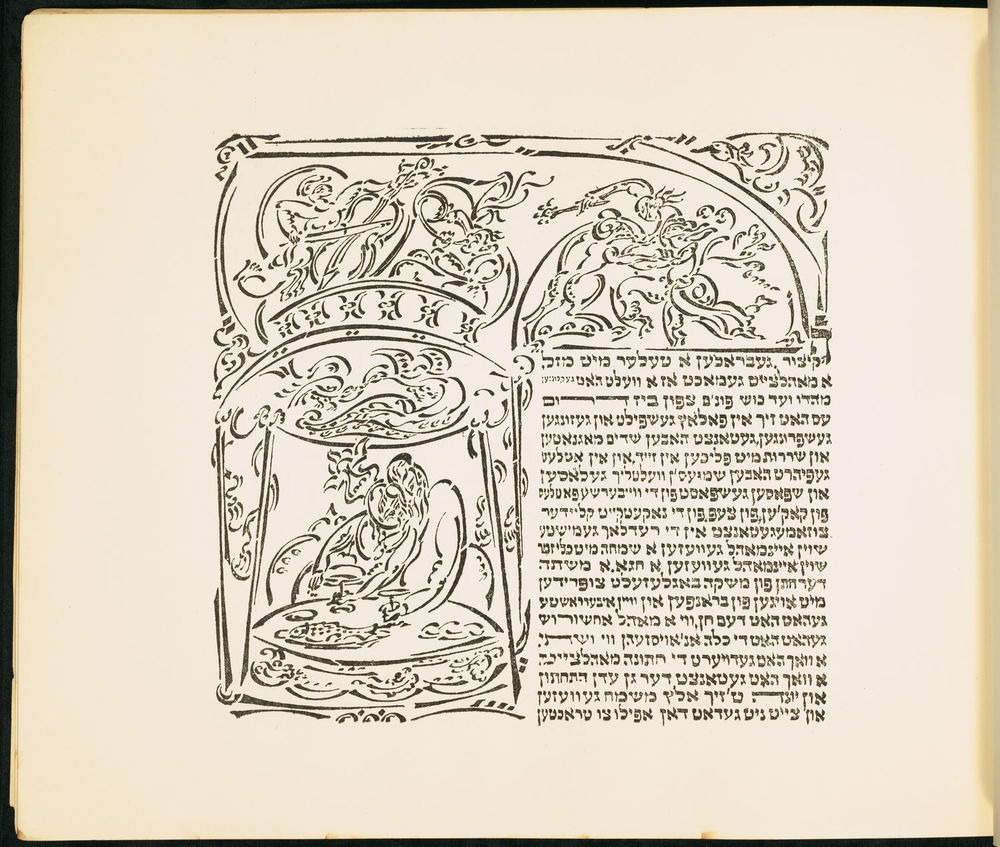 בקיצור, געבראטען א טעלער מיט מזל,
א מאהלצייט געמאכט אז א וועלט האט
מהדו ועד כוש פונ'ם צפון ביז דרום
עס האט זיך אין פאלאץ געשפילט און געזונגען
געשפרונגען, געטאנצט האבען שדים מאגנאטען
און שררות מיט פליכען אין זייד, און אין אטלעס
געפיהרט האבען שמועס'ן וועלטליך געלאסען
און שפאסען געשפאסט פון די ווייבערשע
פון פון צעפ, פון די נאקעטקייט קליידער
צוזאמעגעטאנצט אין די רעדלאך געמישטע
שוין איינמאהל געוועזען א שמחה מיט כליזמר
שוין איינמאהל געוועזען, א חגא, א משתה
דער חתן פון משקה באגלעזעלט צופרידען
מיט אויגען פון בראנפען און וויין איבעוואשטע
געהאט האט דעם חן, ווי א מאהל אחשורוש
געהאט האט די כלה אנ'אויסזעהן ווי ושתי.
א וואך האט געדויערט די חתונה מאהלצייט,
א וואך האט געטאנצט דער גן עדן התחתון
און יעדר ס'זיך אליץ משמח געוועזען
און צייט ניט געהאט דאן אפילו צו טראכטען